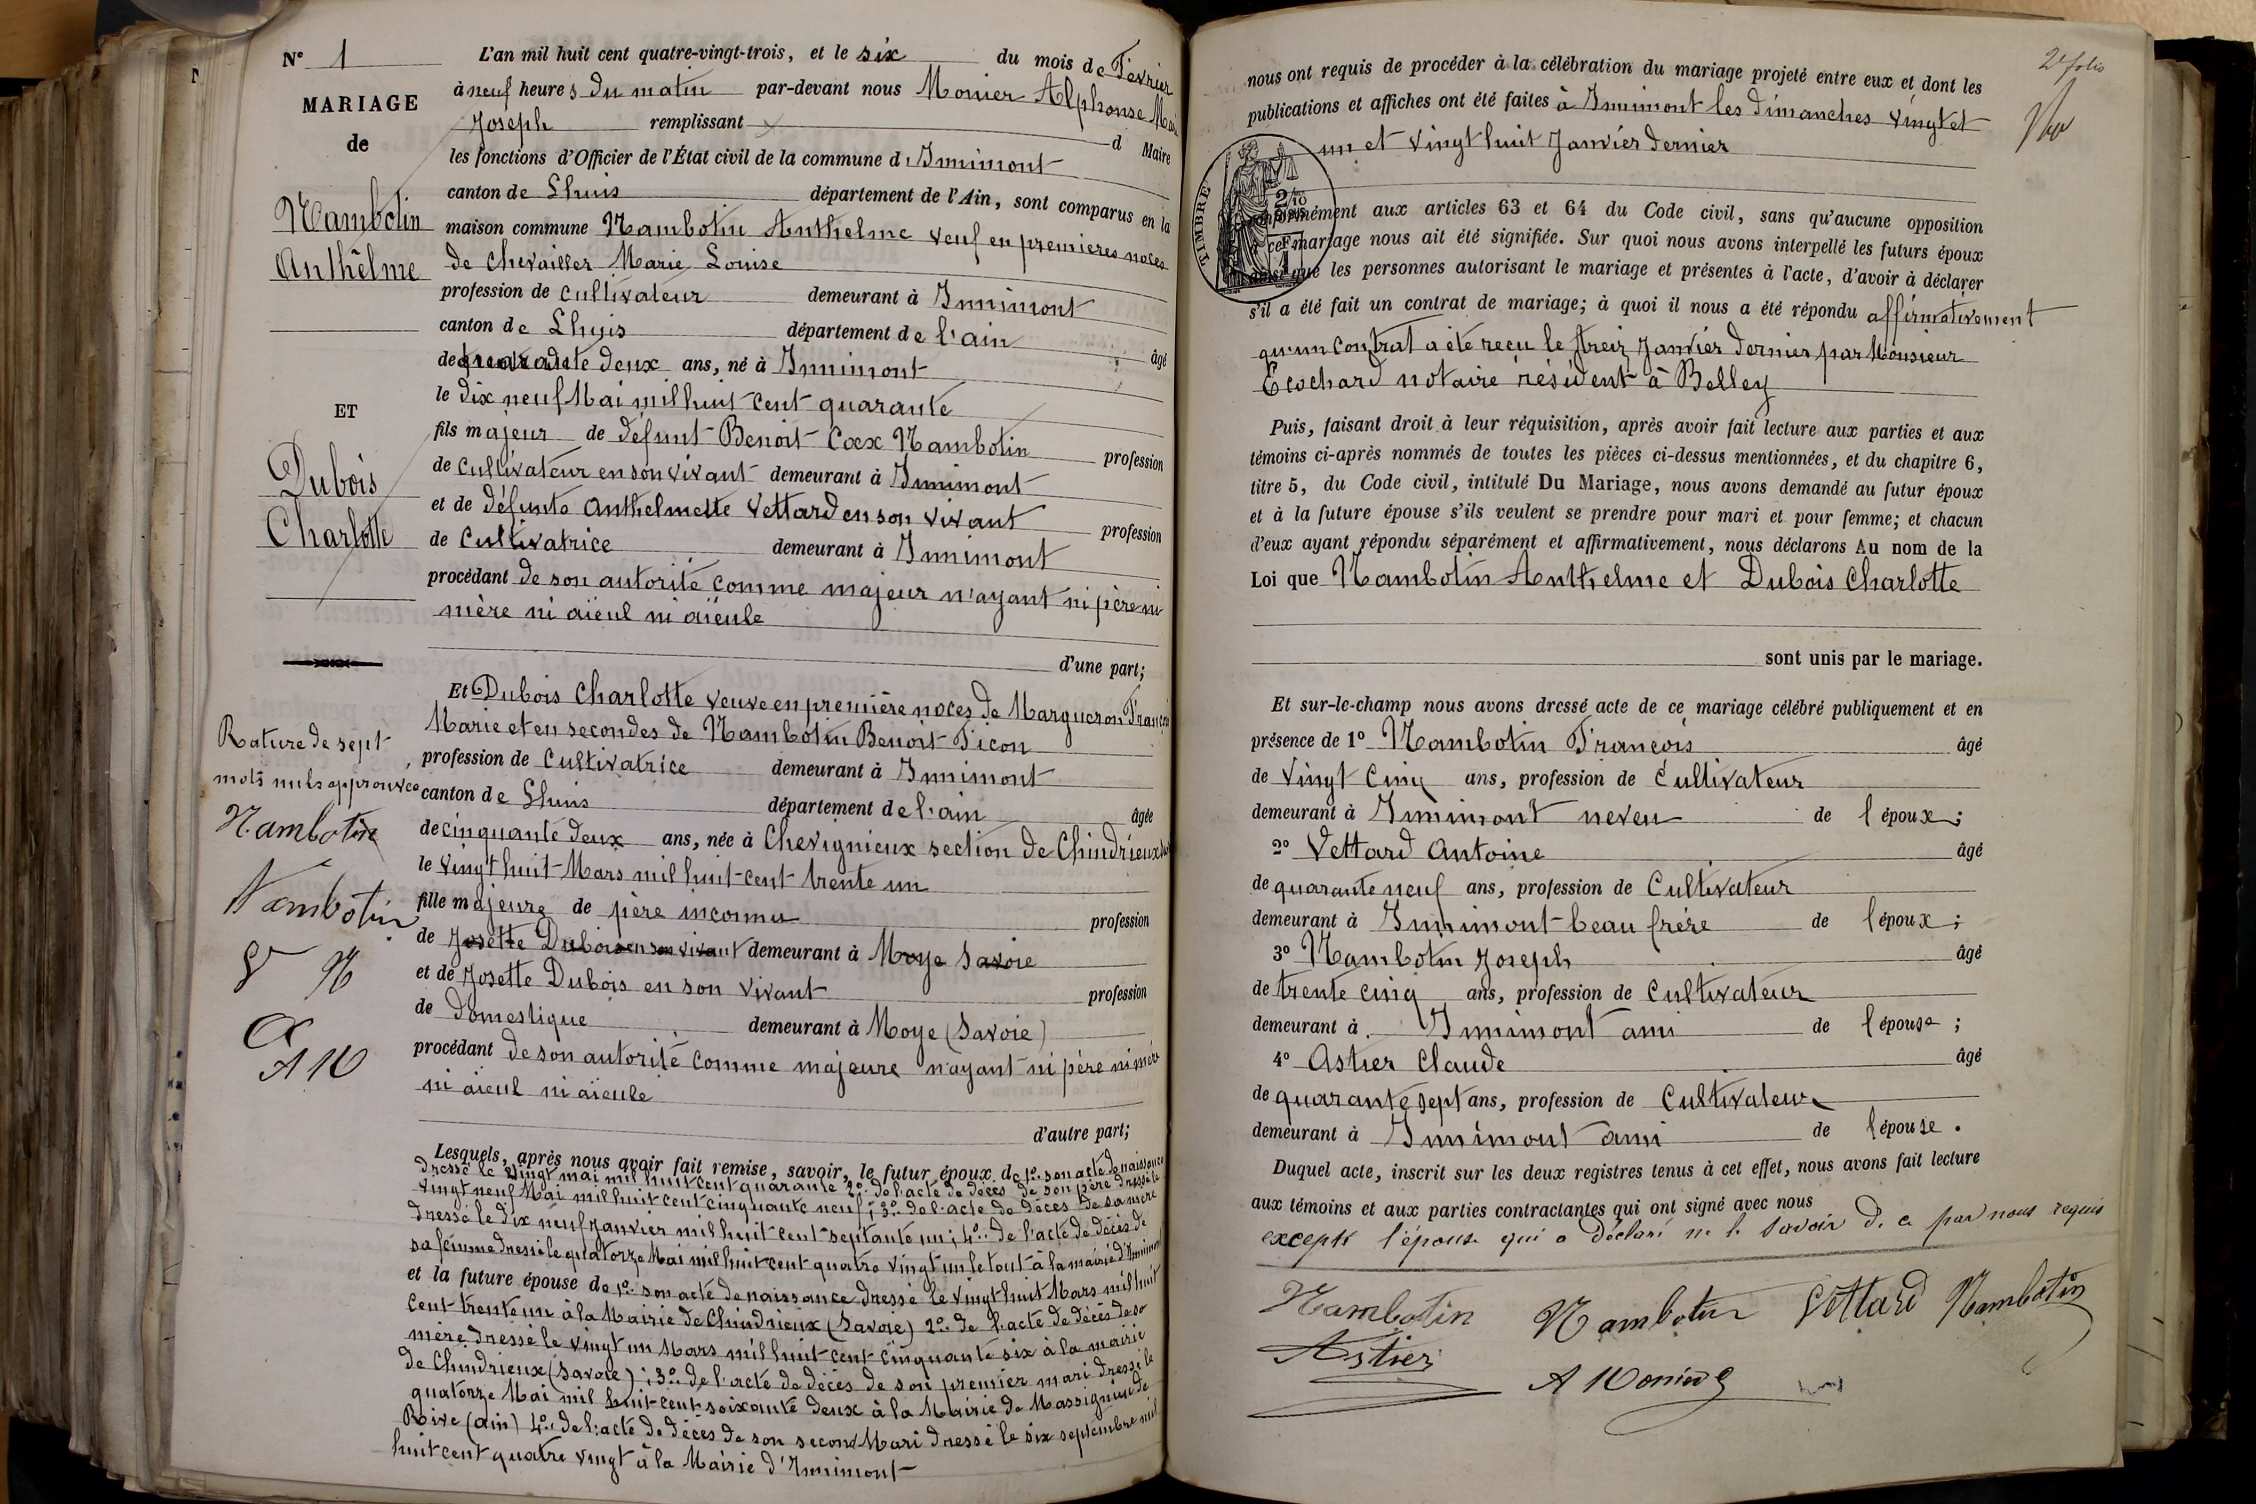 N° 1
MARIAGE
de
Nambotin
Anthelme
ET
Dubois
Charlotte
Rature de sept
mots nuls approuvée
Nambotin
Nambotin
V N
A
A M
L'an mil huit cent quatre-vingt-trois, et le six du mois de Fevrier
à neuf heures du matin par-devant nous Monier Alphonse
Joseph remplissant d Maire
les fonctions d'Officier de l'État civil de la commune d'Innimont
canton de Lhuis département de l'Ain, sont comparus en la
maison commune Nambotin Anthelme veuf en premieres noces
de Chevailler Marie Louise
profession de cultivateur demeurant à Innimont
canton de Lhuis département de l'ain âgé
de quarante deux ans, né à Innimont
le dix neuf Mai mil huit cent quarante
fils majeur de défunt Benoit Cox Nambotin profession
de cultivateur en son vivant demeurant à Innimont
et de défunte Anthelmette Vettard en son vivant profession
de Cultivatrice demeurant à Innimont
procédant de son autorité comme majeur n'ayant ni père ni
mère ni aïeul ni aïeule
d'une part;
Et Dubois Charlotte veuve en première noces de Margueron François
Marie et en secondes de Nambotin Benoit Ticon
profession de Cultivatrice demeurant à Innimont
canton de Lhuis département de l'ain âgée
de cinquante deux ans, née à Chevignieux section de Chindrieux
le vingt huit Mars mil huit cent trente un
fille majeure de père inconnu profession
de Josette Dubois en son vivant demeurant à Moye Savoie
et de Josette Dubois en son vivant profession
de Domestique demeurant à Moye (Savoie)
procédant de son autorité comme majeure n'ayant ni père ni mère
ni aïeul ni aïeule
d'autre part;
Lesquels, après nous avoir fait remise, savoir, le futur époux de 1° son acte de naissance
dressé le vingt mai mil huit cent quarante 2° de l'acte de décès de son père dressé le
vingt neuf Mai mil huit cent cinquante neuf; 3° de l'acte de décès de sa mère
dressé le dix neuf Janvier mil huit cent septante un; 4° de l'acte de décès de
sa femme dressé le quatorze Mai mil huit cent quatre vingt un le tout à la mairie d'Innimont
et la future épouse de 1° son acte de naissance dressé le vingt huit Mars mil huit
cent trente un à la Mairie de Chindrieux (Savoie) 2° de l'acte de décès de sa
mère dressé le vingt un Mars mil huit cent cinquante six à la mairie
de Chindrieux (Savoie); 3° de l'acte de décès de son premier mari dressé le
quatorze Mai mil huit cent soixante deux à la Mairie de Massignieu de
Rive (ain) 4° de l'acte de décès de son second Mari dressé le six septembre mil
huit cent quatre vingt à la Mairie d'Innimont
2e folio
nous ont requis de procéder à la célébration du mariage projeté entre eux et dont les
publications et affiches ont été faites à Innimont les dimanches vingt et
un et vingt huit Janvier dernier
TIMBRE
conformément aux articles 63 et 64 du Code civil, sans qu'aucune opposition
ce mariage nous ait été signifiée. Sur quoi nous avons interpellé les futurs époux
ainsi que les personnes autorisant le mariage et présentes à l'acte, d'avoir à déclarer
s'il a été fait un contrat de mariage; à quoi il nous a été répondu affirmativement
qu'un contrat a été reçu le treiz Janvier dernier par Monsieur
Ecochard notaire résident à Belley
Puis, faisant droit à leur réquisition, après avoir fait lecture aux parties et aux
témoins ci-après nommés de toutes les pièces ci-dessus mentionnées, et du chapitre 6,
titre 5, du Code civil, intitulé Du Mariage, nous avons demandé au futur époux
et à la future épouse s'ils veulent se prendre pour mari et pour femme; et chacun
d'eux ayant répondu séparément et affirmativement, nous déclarons Au nom de la
Loi que Nambotin Anthelme et Dubois Charlotte
sont unis par le mariage.
Et sur-le-champ nous avons dressé acte de ce mariage célébré publiquement et en
présence de 1° Nambotin François âgé
de vingt cinq ans, profession de cultivateur
demeurant à Innimont neveu de l'époux;
2° Vettard Antoine âgé
de quarante neuf ans, profession de Cultivateur
demeurant à Innimont beau frère de l'époux;
3° Nambotin Joseph âgé
de trente cinq ans, profession de Cultivateur
demeurant à Innimont ami de l'épouse;
4° Astier Claude âgé
de quarante sept ans, profession de Cultivateur
demeurant à Innimont ami de l'épouse.
Duquel acte, inscrit sur les deux registres tenus à cet effet, nous avons fait lecture
aux témoins et aux parties contractantes qui ont signé avec nous
excepté l'épouse qui a déclaré ne le savoir de ce par nous requis
Nambotin Nambotin Vettard Nambotin
Astier A Monier